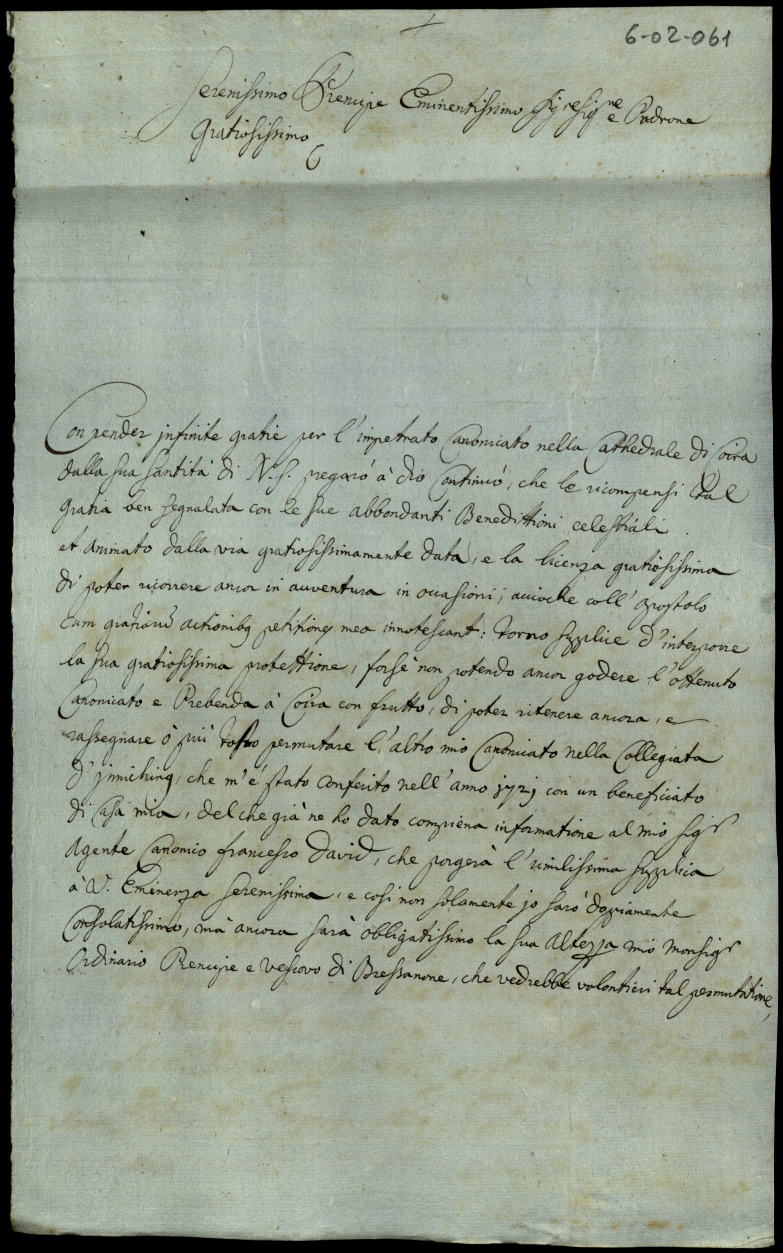 6-02-061
Serenissimo Prencipe Eminentissimo Sigre Sigre e Padrone
Gratiosissimo
Con render infinite gratie per l'impetrato Canonicato nella Cathedrale di Coira
dalla sua Santità di N.S. pregarò à dio Continuò, che le ricompensi tal
gratia ben segnalata con le sue abbondanti Benedittioni celestiali.
et animato dalla via gratiosissimamente data, e la licenza gratiosissima
di poter ricorrere ancor in avventura in occasioni, accioche coll' apostolo
cum gratiarũ actionibq petitioneq mea innotescant: torno supplice d'interporre
la sua gratiosissima protettione, forse non potendo ancor godere l'ottenuto
Canonicato e Prebenda à Coira con frutto, di poter ritenere ancora, e
rassegnare ò più tosto permutare l'altro mio Canonicato nella Collegiata
d'Jnniching, che m'è stato conferito nell'anno 1721 con un beneficiato
di Casa mia, del che già ne ho dato compiena informatione al mio sigr
Agente Canonico francesco David, che porgerà l'umilissima supplica
à V. Eminenza Serenissima, e così non solamente jo sarò dopiamente
Consolatissimo, mà ancora sarà obligatissimo la sua Altezza mio Monsigr
Ordinario Prencipe e vescovo di Bressanone, che vedrebbe volontieri tal permutatione,